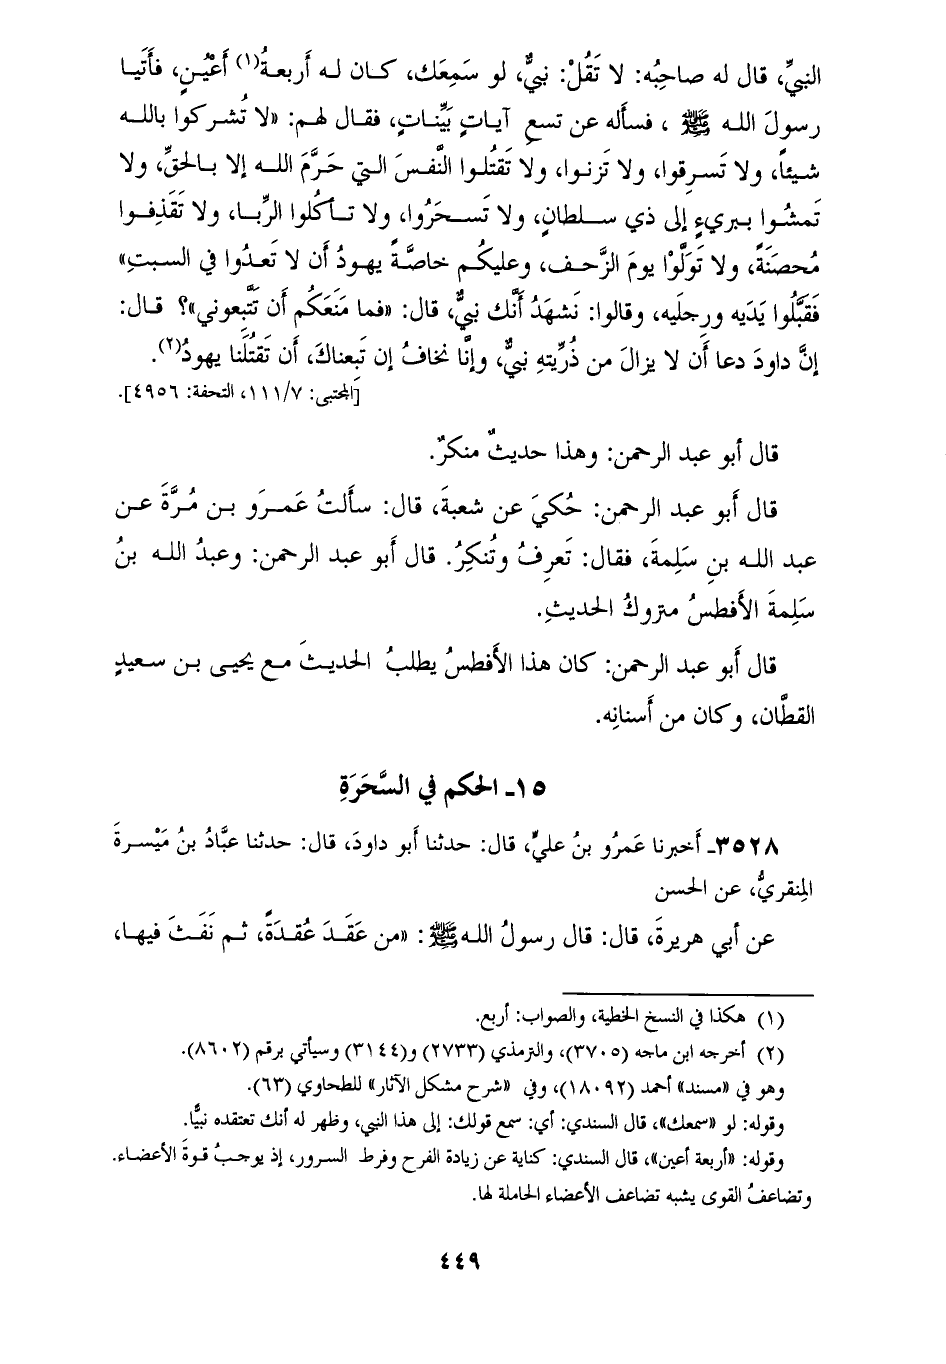 النبيِّ، قال له صاحِبُه: لا تَقُلْ: نبيٌّ، لو سَمِعَك، كان له أَربعةُ(١) أَعْيُنٍ، فأَتَيا
رسولَ الله ﷺ ، فسأله عن تسعِ آياتٍ بَيِّناتٍ، فقال لهم: «لا تُشركوا بالله
شيئاً، ولا تَسرقوا، ولا تَزنوا، ولا تَقتُلوا النَّفسَ التي حَرَّمَ الله إلا بالحقِّ، ولا
تَمشُوا ببريءٍ إلى ذي سلطانٍ، ولا تَسحَرُوا، ولا تأكُلوا الرِّبا، ولا تَقَذِفوا
مُحصَنَةً، ولا تَوَلَّوْا يومَ الزَّحف، وعليكُم خاصَّةً يهودُ أن لا تَعدُوا في السبتِ»
فَقَبَّلُوا يَدَيه ورجلَيه، وقالوا: نَشهَدُ أَنَّك نبيٌّ، قال: «فما مَنَعَكُم أن تَتَّبعوني»؟ قال:
إنَّ داودَ دعا أَن لا يزالَ من ذُرِّيتهِ نبيٌّ، وإنَّا نخافُ إن تَبعناكَ، أَن تَقتُلَنا يهودُ(٢).
[المجتبى: ١١١/٧، التحفة: ٤٩٥٦].
قال أبو عبد الرحمن: وهذا حديثٌ منكرٌ.
قال أَبو عبد الرحمن: حُكيَ عن شعبةَ، قال: سأَلتُ عَمرَو بن مُرَّةَ عن
عبد الله بنِ سَلِمةَ، فقال: تَعرِفُ وتُنكِرُ. قال أَبو عبد الرحمن: وعبدُ الله بنُ
سَلِمةَ الأَفطسُ متروكُ الحديثِ.
قال أَبو عبد الرحمن: كان هذا الأَفطسُ يطلبُ الحديثَ مع يحيى بن سعيدٍ
القطَّان، وكان من أَسنانِه.
١٥- الحكم في السَّحَرَةِ
٣٥٢٨- أَخبرنا عَمرُو بنُ عليٍّ، قال: حدثنا أَبو داودَ، قال: حدثنا عبَّادُ بنُ مَيْسرةَ
المِنقريُّ، عن الحسن
عن أبي هريرةَ، قال: قال رسولُ الله ﷺ : «من عَقَدَ عُقدَةً، ثم نَفَثَ فيها،
(١) هكذا في النسخ الخطية، والصواب: أربع.
(٢) أخرجه ابن ماجه (٣٧٠٥)، والترمذي (٢٧٣٣) و(٣١٤٤) وسيأتي برقم (٨٦٠٢).
وهو في «مسند» أحمد (١٨٠٩٢)، وفي «شرح مشكل الآثار» للطحاوي (٦٣).
وقوله: لو «سمعك»، قال السندي: أي: سمع قولك: إلى هذا النبي، وظهر له أنك تعتقده نبيًّا.
وقوله: «أربعة أعين»، قال السندي: كناية عن زيادة الفرح وفرط السرور، إذ يوجبُ قوةَ الأعضاء.
وتضاعفُ القوى يشبه تضاعف الأعضاء الحاملة لها.
٤٤٩